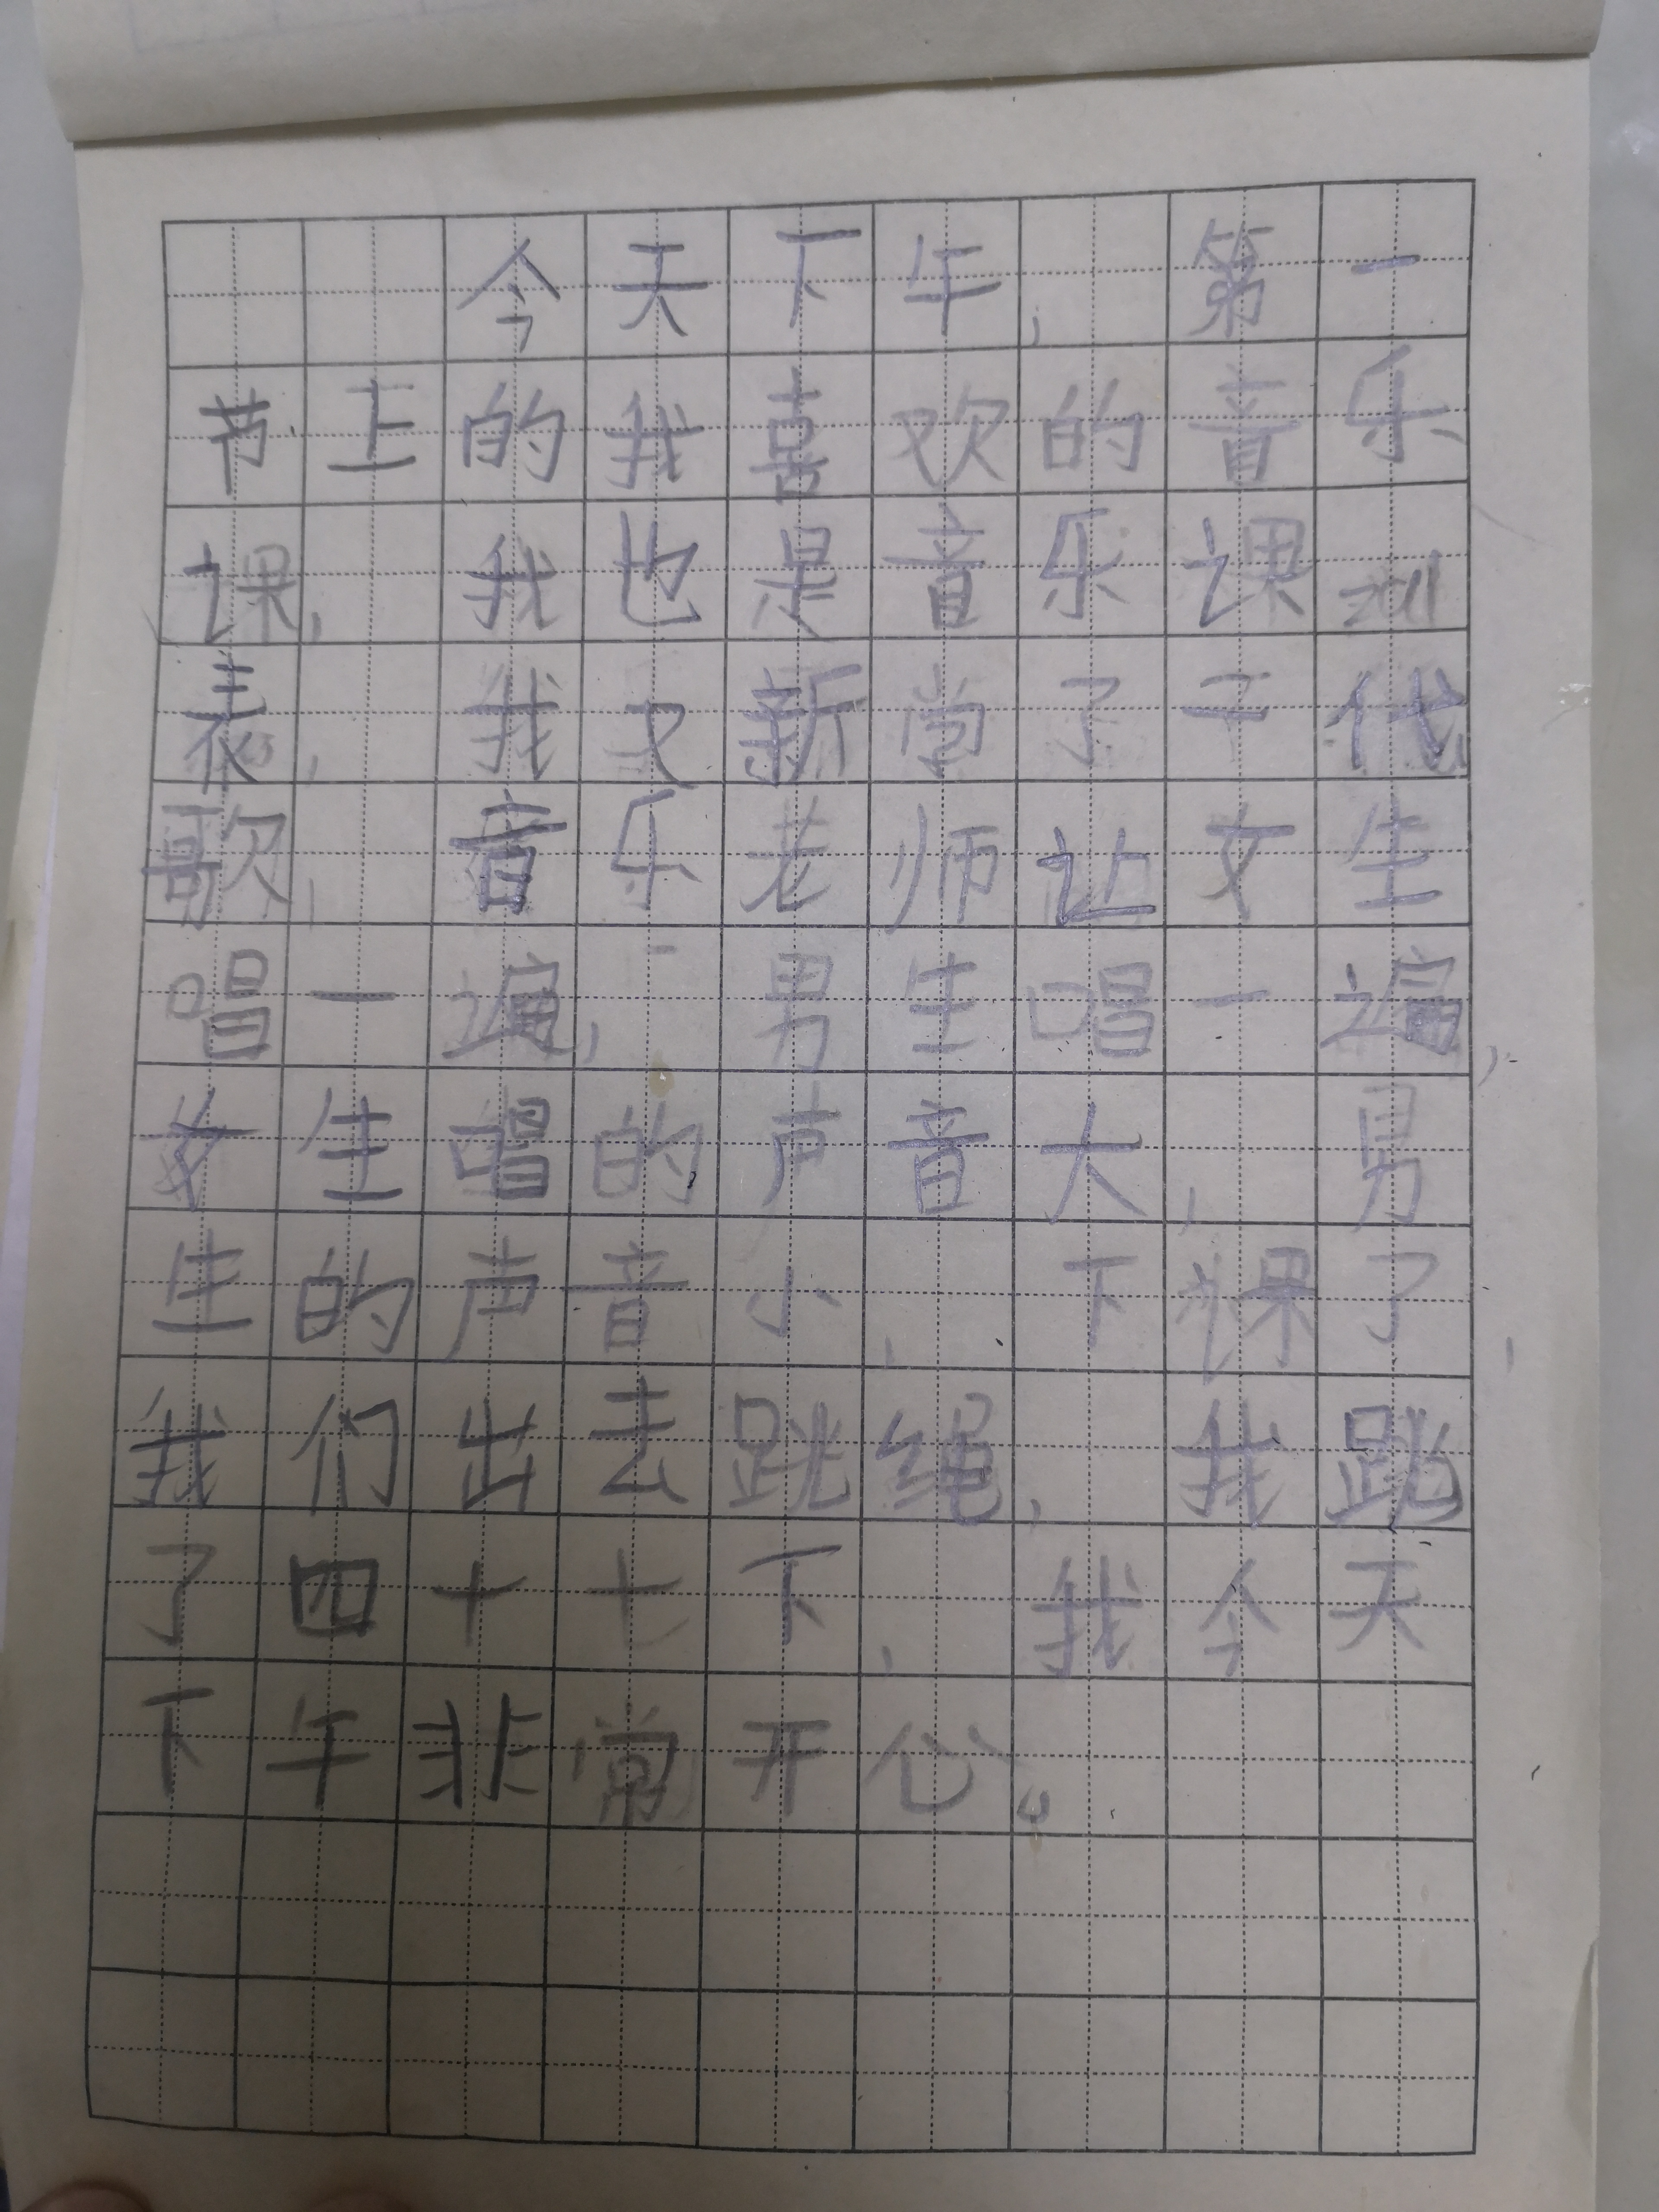 今天下午，第一
节上的我喜欢的音乐
课，我也是音乐课
表，我又新学了 代
歌，音乐老师让女生
唱一遍，男生唱一遍，
女生唱的声音大，男
生的声音小，下课了，
我们出去跳绳，我跳
了四十七下，我今天
下午非常开心。